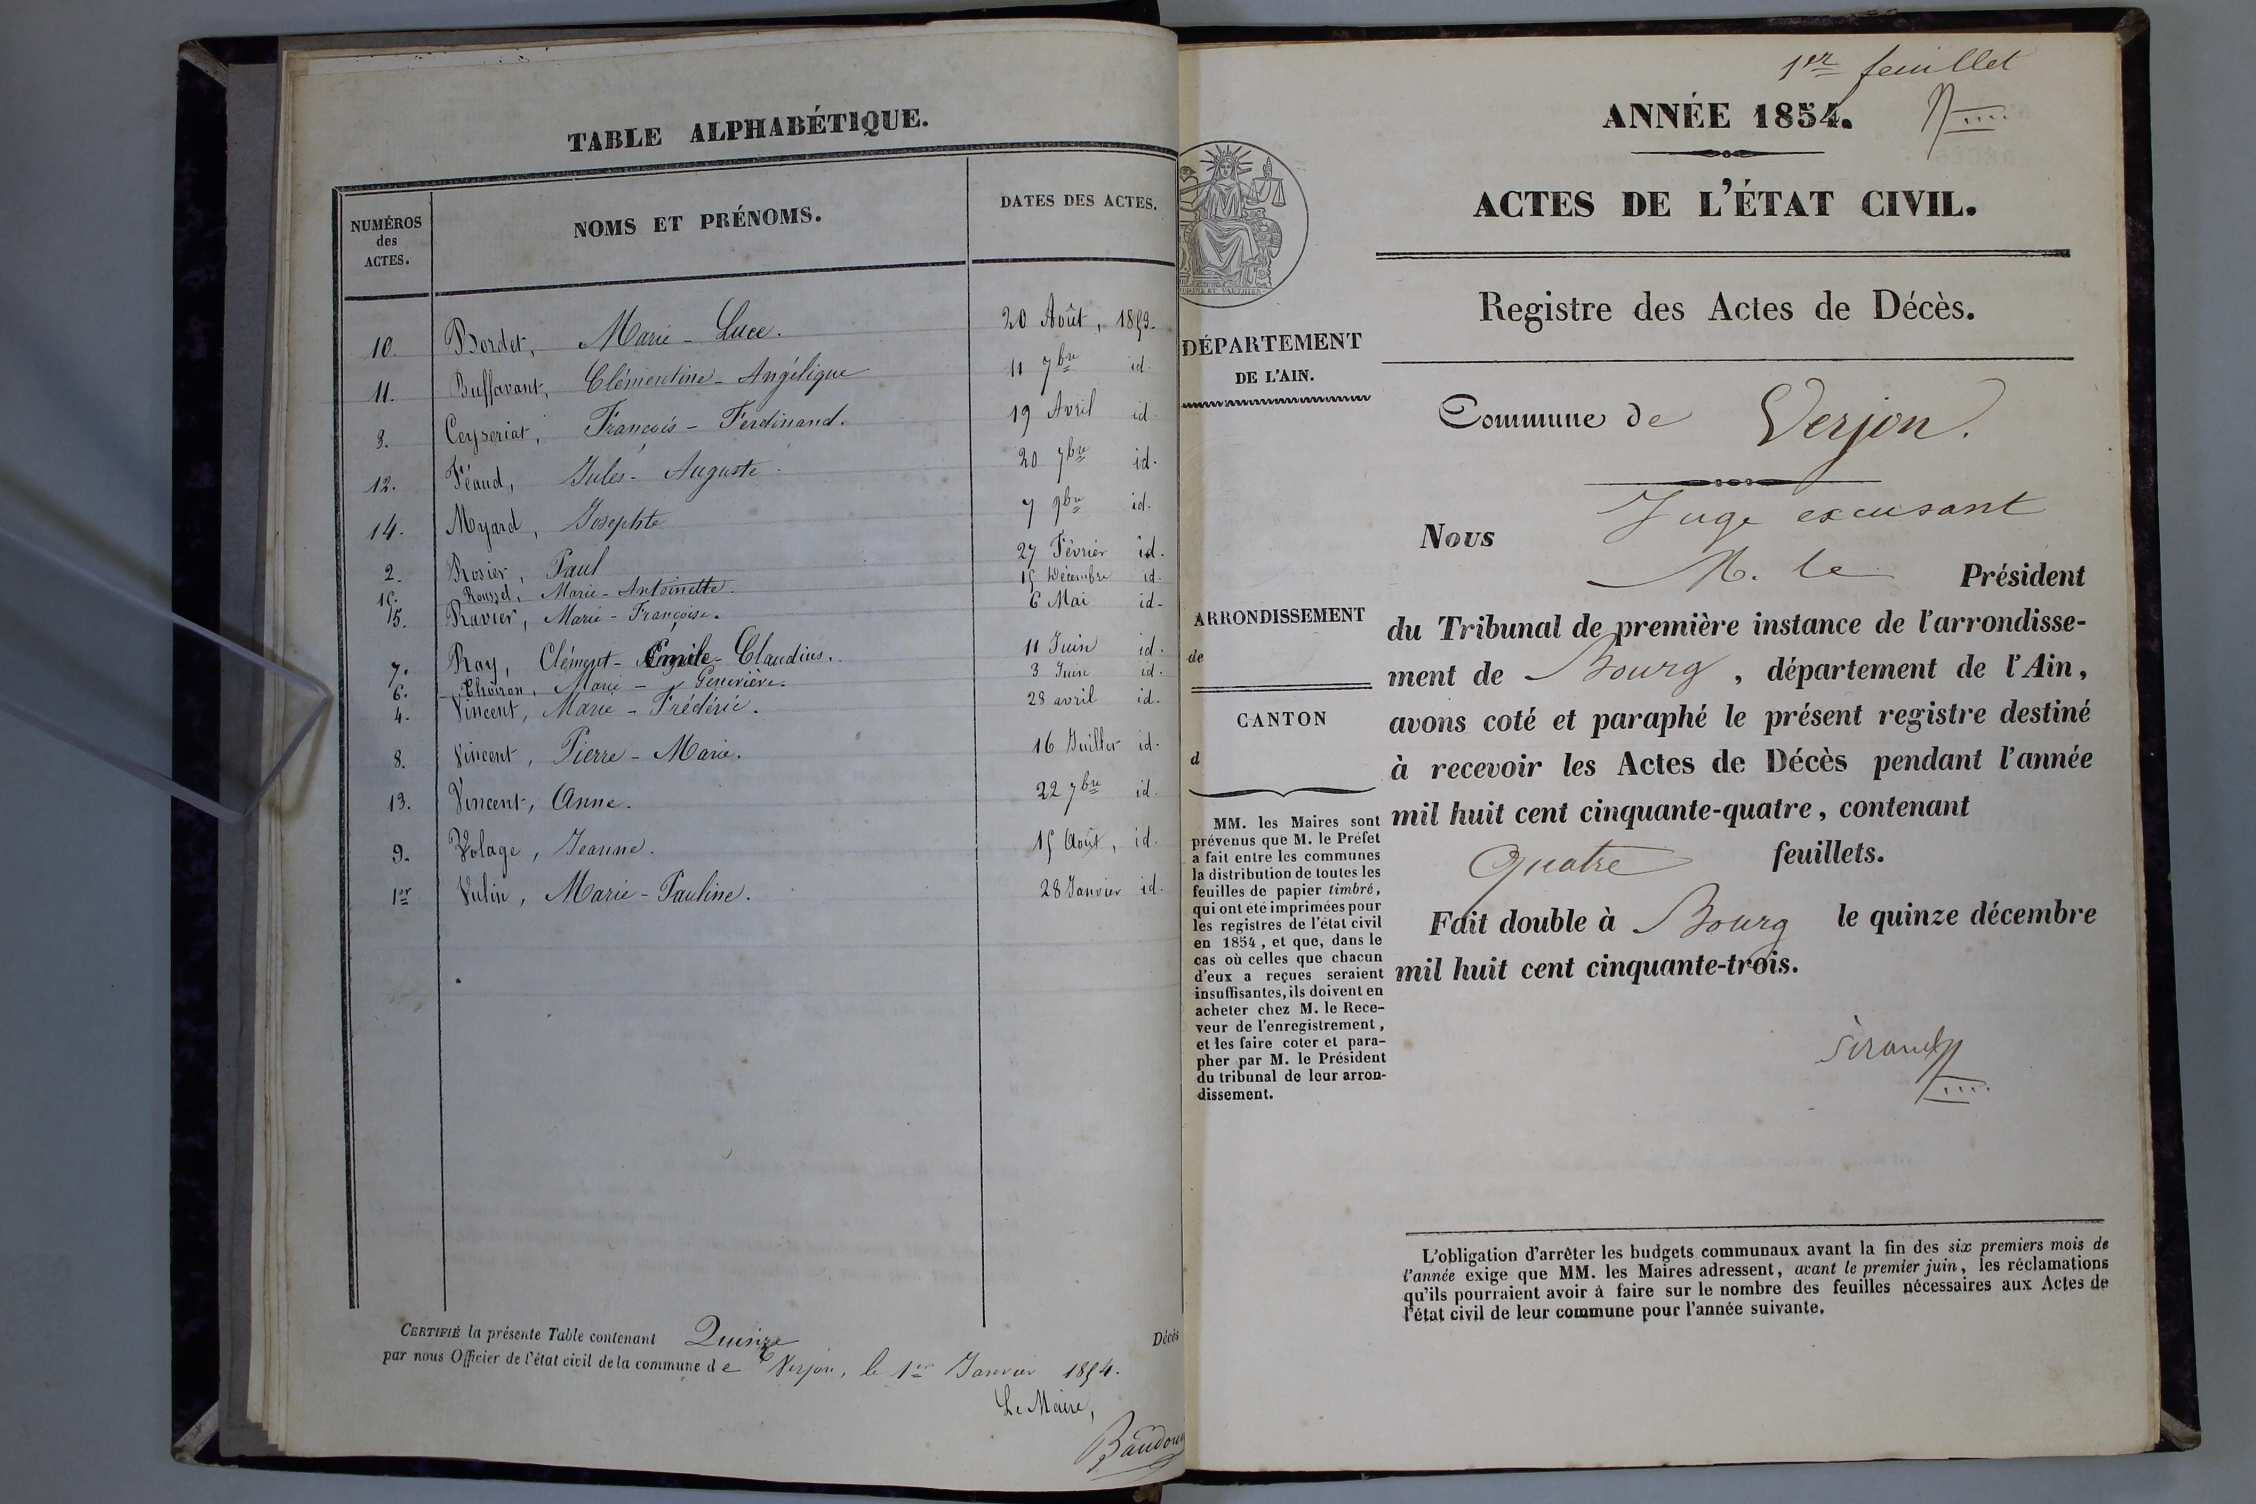 TABLE ALPHABÉTIQUE.
NUMÉROS
des
ACTES.
NOMS ET PRÉNOMS.
DATES DES ACTES.
10. Bordet, Marie - Luce. 20 Août, 1853.
11. Buffavant, Clémentine - Angélique 11 7bre id.
3. Ceyseriat, François - Ferdinand. 19 Avril id.
12. Féaud, Jules - Auguste 20 7bre id.
14. Myard, Josephte 7 9bre id.
2. Rosier, Paul 27 Février id.
Roussel, Marie - Antoinette. 15 Décembre id.
5. Ravier, Marie - Françoise. 6 Mai id.
7. Ray, Clément - Emile - Claudius. 11 Juin id.
6. Thoiron, Marie - Geneviève. 3 Juin id.
4. Vincent, Marie - Frédéric. 28 avril id.
8. Vincent, Pierre - Marie. 16 Juillet id.
13. Vincent, Anne. 22 7bre id.
9. Volage, Jeanne. 15 Août, id.
1er Vulin, Marie - Pauline. 28 Janvier id.
CERTIFIÉ la présente Table contenant Quinze Décès
par nous Officier de l'état civil de la commune de Verjon, le 1er Janvier 1854.
Le Maire,
1er feuillet
ANNÉE 1854.
ACTES DE L'ÉTAT CIVIL.
Registre des Actes de Décès.
DÉPARTEMENT
DE L'AIN.
Commune de Verjon.
Nous Juge excusant
M. le Président
du Tribunal de première instance de l'arrondisse-
ment de Bourg, département de l'Ain,
avons coté et paraphé le présent registre destiné
à recevoir les Actes de Décès pendant l'année
mil huit cent cinquante-quatre, contenant
Quatre feuillets.
Fait double à Bourg le quinze décembre
mil huit cent cinquante-trois.
ARRONDISSEMENT
de
CANTON
d
MM. les Maires sont
prévenus que M. le Préfet
a fait entre les communes
la distribution de toutes les
feuilles de papier timbré,
qui ont été imprimées pour
les registres de l'état civil
en 1854, et que, dans le
cas où celles que chacun
d'eux a reçues seraient
insuffisantes, ils doivent en
acheter chez M. le Rece-
veur de l'enregistrement,
et les faire coter et para-
pher par M. le Président
du tribunal de leur arron-
dissement.
L'obligation d'arrêter les budgets communaux avant la fin des six premiers mois de
l'année exige que MM. les Maires adressent, avant le premier juin, les réclamations
qu'ils pourraient avoir à faire sur le nombre des feuilles nécessaires aux Actes de
l'état civil de leur commune pour l'année suivante.